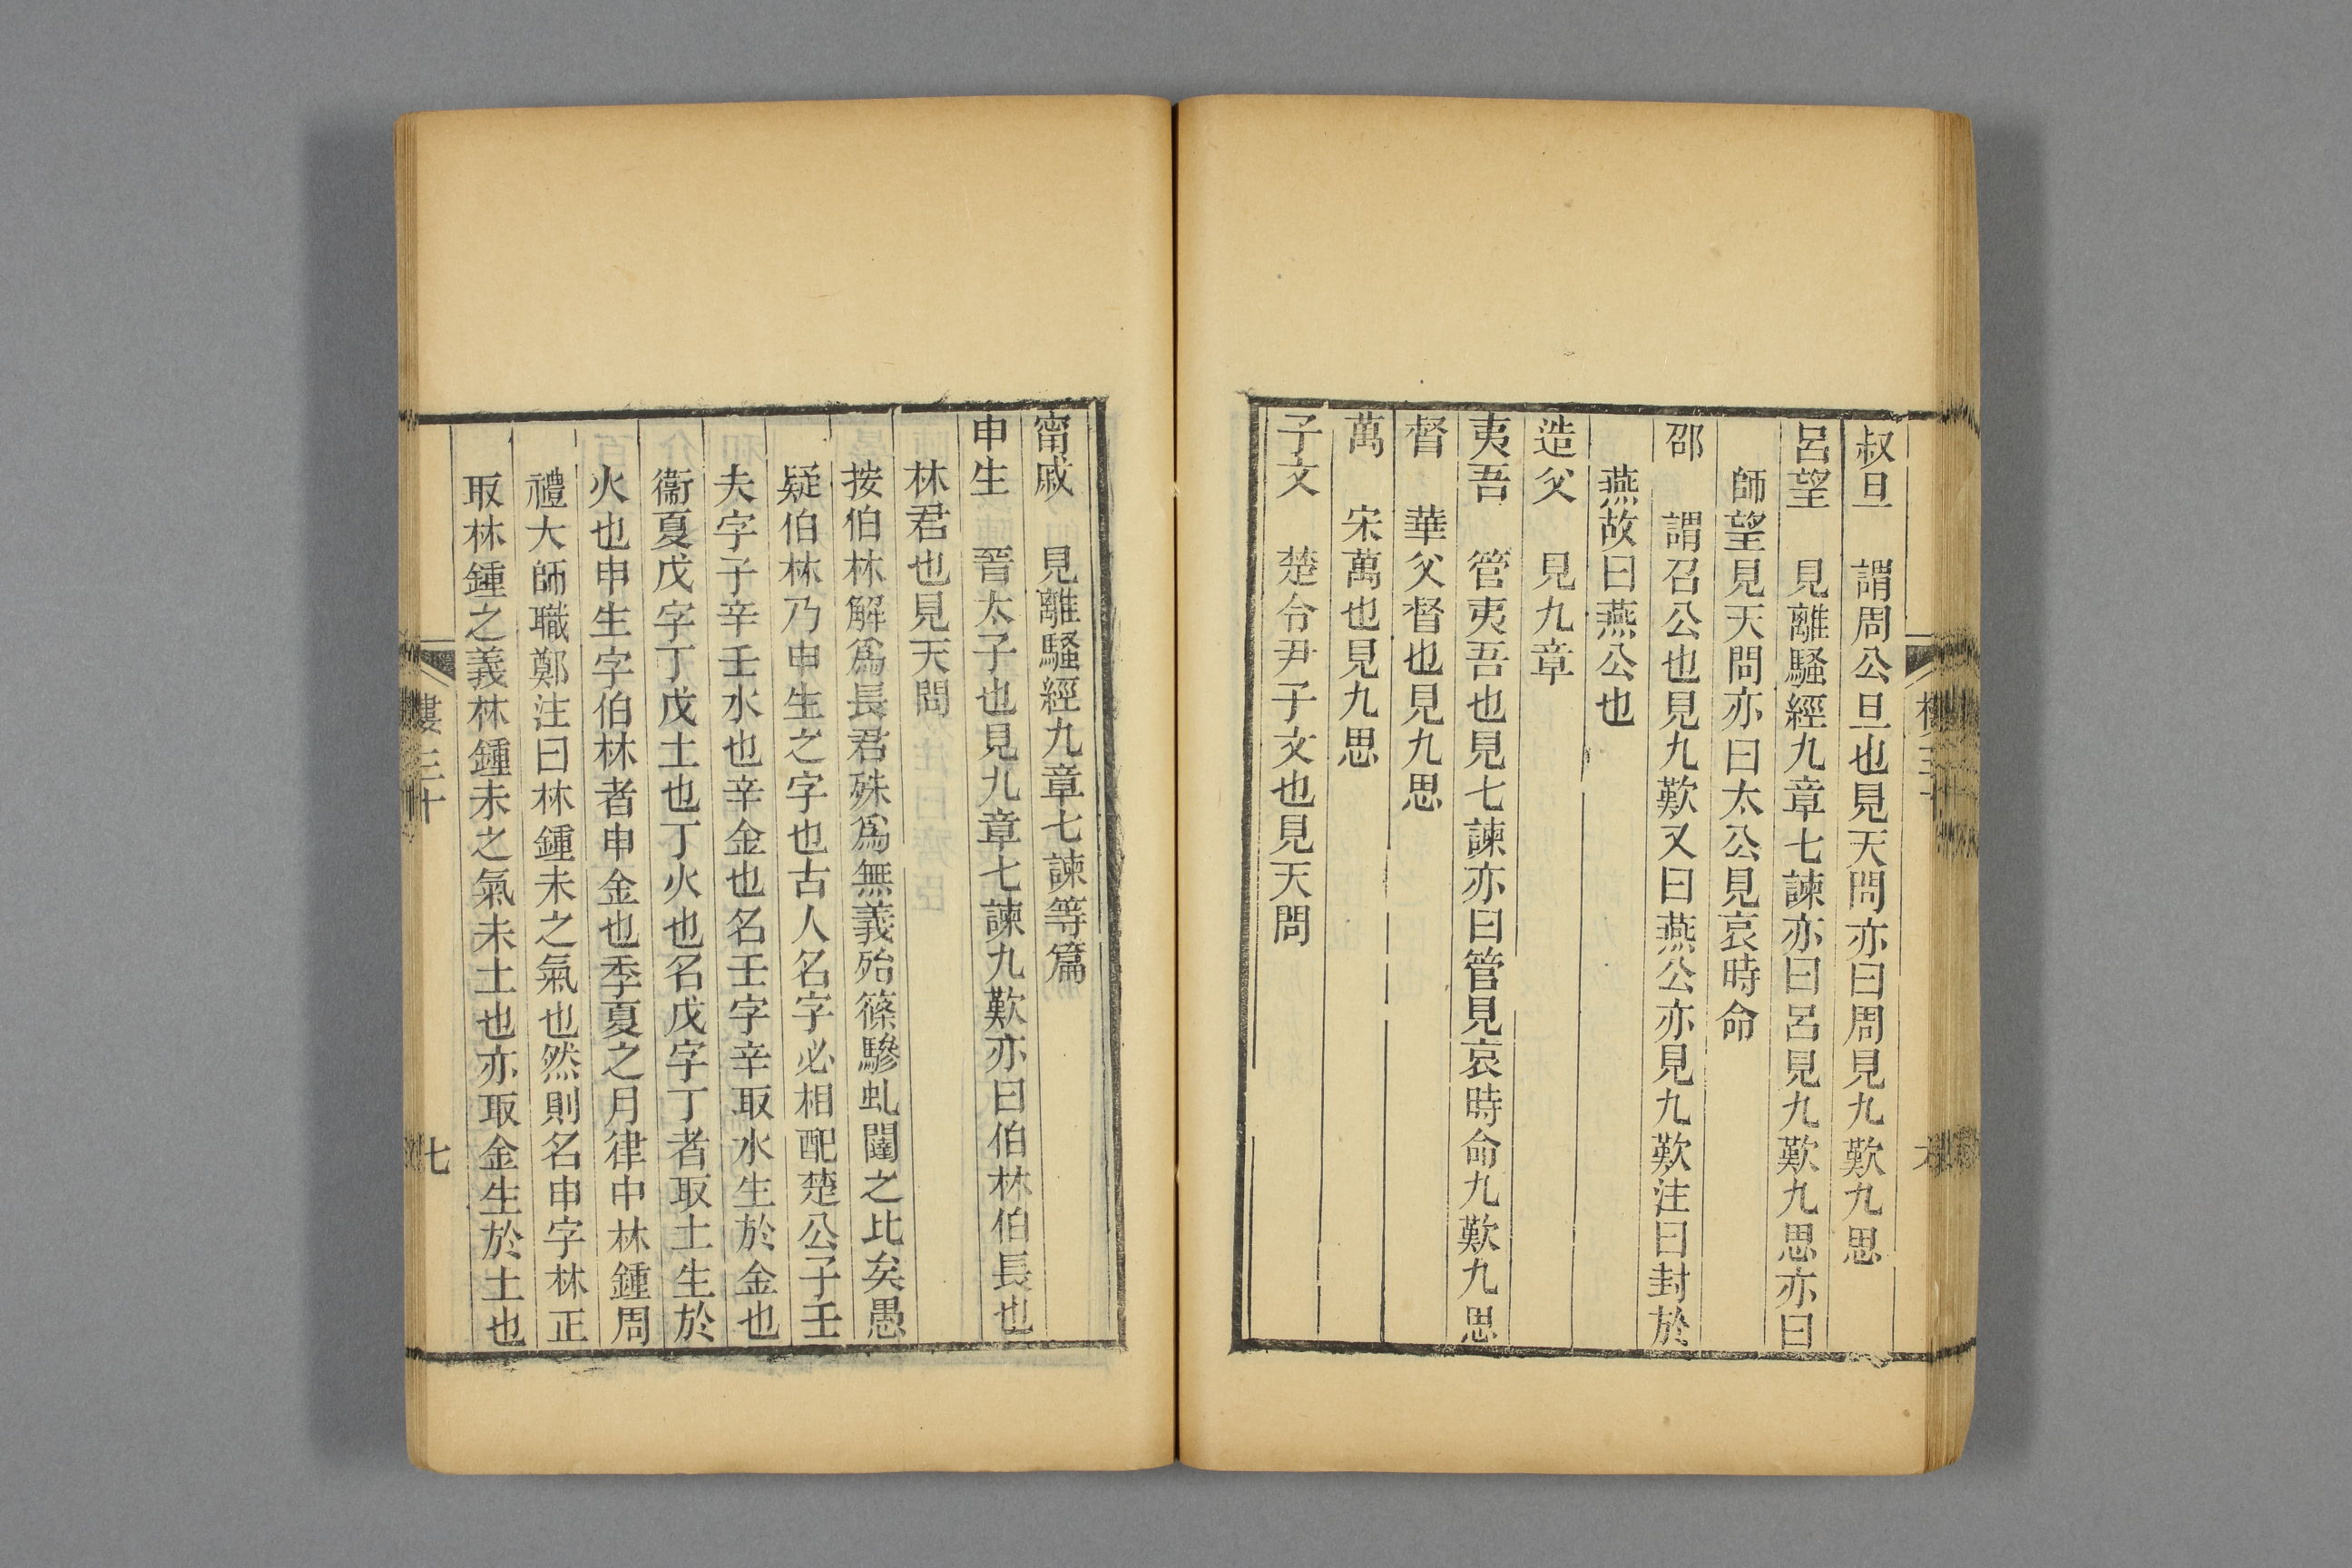 叔旦　謂周公旦也見天問亦曰周見九歎九思
呂望　見離騷經九章七諫亦曰呂見九歎九思亦曰
師望見天問亦曰太公見哀時命
邵　謂召公也見九歎又曰燕公亦見九歎注曰封於
燕故曰燕公也
造父　見九章
夷吾　管夷吾也見七諫亦曰管見哀時命九歎九思
督　華父督也見九思
萬　宋萬也見九思
子文　楚令尹子文也見天問
甯戚　見離騷經九章七諫等篇
申生　晉太子也見九章七諫九歎亦曰伯林伯長也
林君也見天問
按伯林解爲長君殊爲無義殆篠驂虬闥之比矣愚
疑伯林乃申生之字也古人名字必相配楚公子壬
夫字子辛壬水也辛金也名壬字辛取水生於金也
衞夏戊字丁戊土也丁火也名戊字丁者取土生於
火也申生字伯林者申金也季夏之月律中林鍾周
禮大師職鄭注曰林鍾未之氣也然則名申字林正
取林鍾之義林鍾未之氣未土也亦取金生於土也
樓三十
七